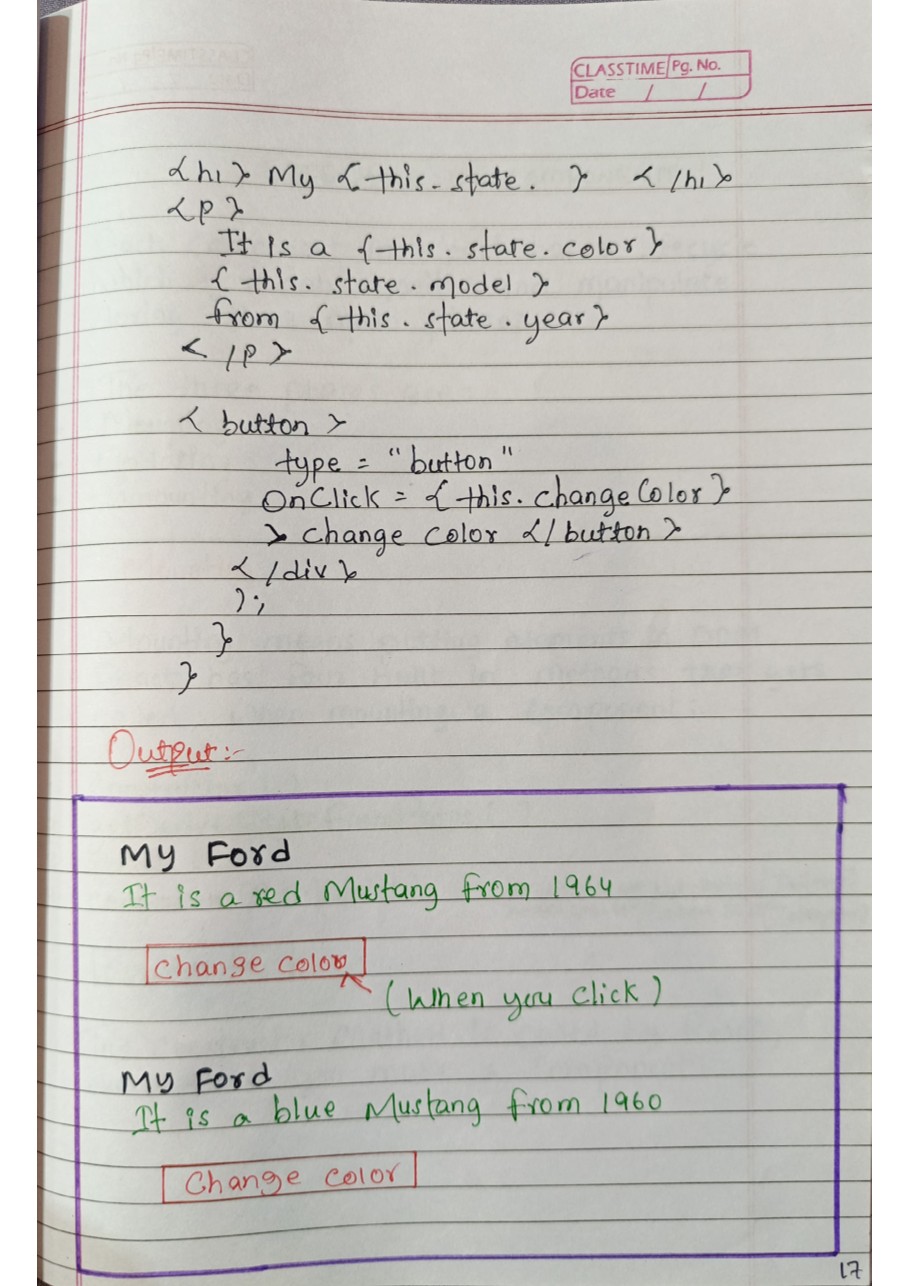 CLASSTIME Pg. No.
Date / /
<h1> My {this.state. } </h1>
<p>
It is a {this.state.color}
{this.state.model}
from {this.state.year}
</p>
<button>
type = "button"
OnClick = {this.changeColor}
> change color </button>
</div>
);
}
}
Output:-
My Ford
It is a red Mustang from 1964
change color
(When you click)
My Ford
It is a blue Mustang from 1960
Change color
17